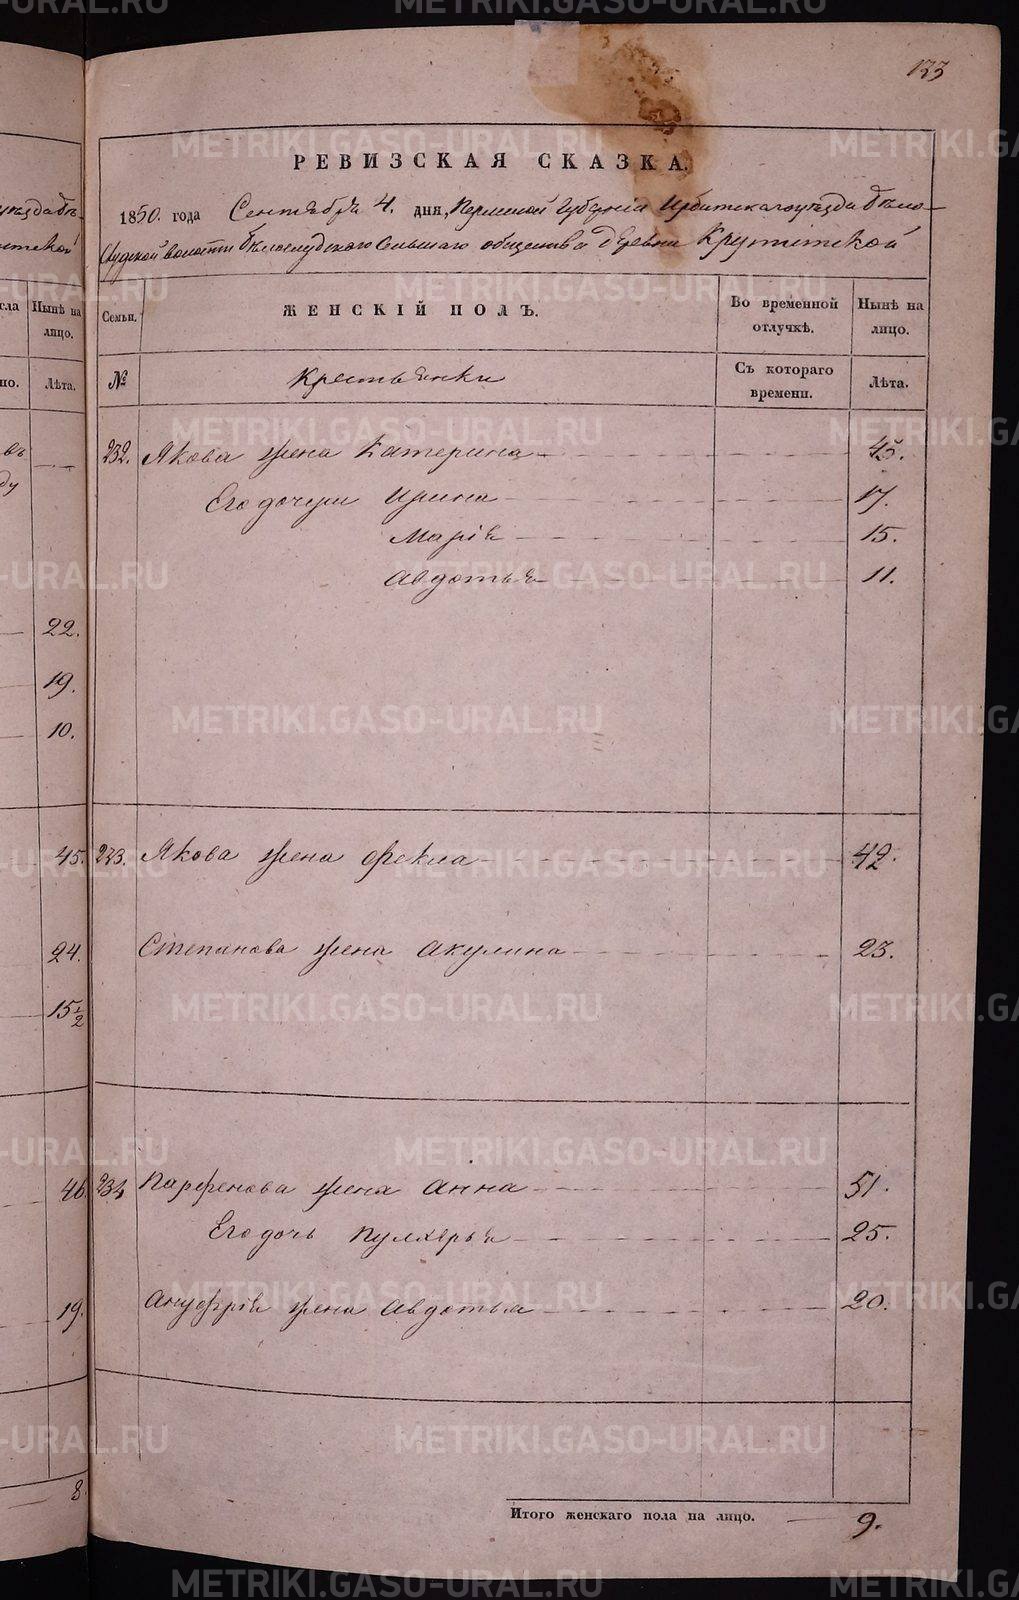 133
РЕВИЗСКАЯ СКАЗКА.
1850. года Сентября 4. дня, Пермской Губерніи Ирбитскаго уѣзда бѣло-
слудской волости бѣлослудскаго Сельскаго общества деревни Крутитской
Семьи. ЖЕНСКІЙ ПОЛЪ. Во временной отлучкѣ. Нынѣ на лицо.
№ Крестьянки Съ котораго времени. Лѣта.
232. Якова жена Катерина 45.
Его дочери Ирина 17.
Марія 15.
Авдотья 11.
233. Якова жена Фекла 42.
Степанова жена Акулина 23.
234 Парфенова жена Анна 51.
Его дочь Пулхерья 25.
Ануфрія жена Авдотья 20.
Итого женскаго пола на лицо. 9.
Нынѣ на лицо.
Лѣта.
22.
19.
10.
45.
24.
15 1/2
46.
19.
8.
METRIKI.GASO-URAL.RU